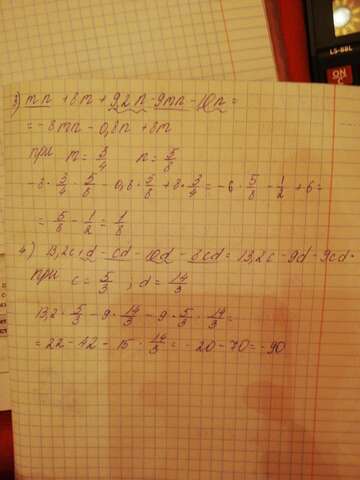 LS-88L
ON
C
3) mn + 8m + 9,2n - 9mn - 10n =
= -8mn - 0,8n + 8m
при m = 3/4 n = 5/8
-8 · 3/4 · 5/8 - 0,8 · 5/8 + 8 · 3/4 = -6 · 5/8 - 1/2 + 6 =
= 5/8 - 1/2 = 1/8
4) 13,2c + d - cd - 10d - 8cd = 13,2c - 9d - 9cd =
при c = 5/3 , d = 14/3
13,2 · 5/3 - 9 · 14/3 - 9 · 5/3 · 14/3 =
= 22 - 42 - 15 · 14/3 = -20 - 70 = -90